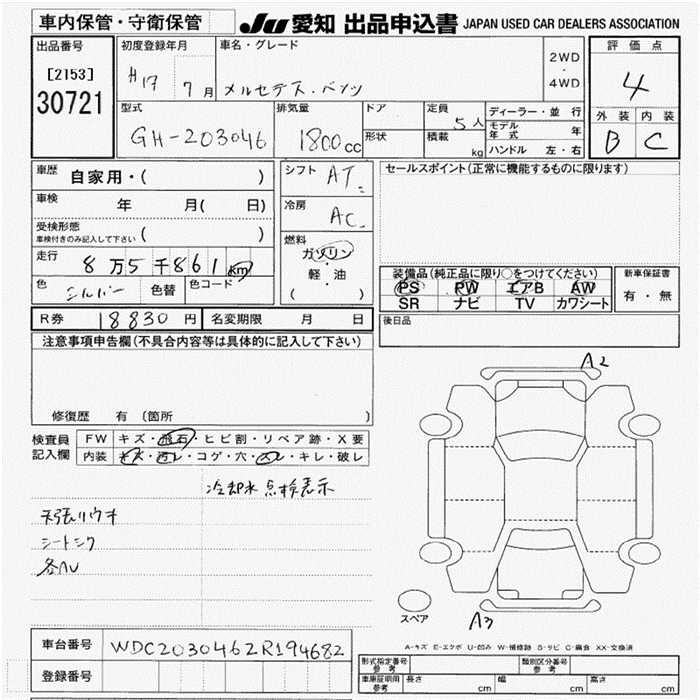 車内保管・守衛保管
JU 愛知 出品申込書 JAPAN USED CAR DEALERS ASSOCIATION
出品番号 初度登録年月 車名・グレード 2WD・4WD 評価点
[2153]
30721 H17 7月 メルセデス・ベンツ 4
型式 排気量 ドア 定員 5人 ディーラー・並行 外装 内装
GH-203046 1800cc 形状 積載 kg モデル年式 年 B C
ハンドル 左・右
車歴 自家用・( ) シフト AT セールスポイント(正常に機能するものに限ります)
車検 年 月( 日) 冷房 AC
受検形態 ( )
車検付きのみ記入して下さい
走行 8万5千861km 燃料 ガソリン・軽油 ( )
装備品(純正品に限り○をつけてください) 新車保証書
PS PW エアB AW 有・無
色 シルバー 色替 色コード SR ナビ TV カワシート
R券 18830円 名変期限 月 日 後日品
注意事項申告欄(不具合内容等は具体的に記入して下さい)
A2
修復歴 有 (箇所 )
検査員 FW キズ・飛石・ヒビ割・リペア跡・X要
記入欄 内装 キズ・汚レ・コゲ・穴・スレ・キレ・破レ
冷却水点検表示
天張リウキ
シートシワ
各ヘリ
スペア
A3
A-キズ E-エクボ U-凹み W-補修跡 S-サビ C-腐食 XX-交換済
車台番号 WDC2030462R194682 形式指定番号 参考 類別区分番号 参考
登録番号 車庫証明用 参考 長さ cm 幅 cm 高さ cm